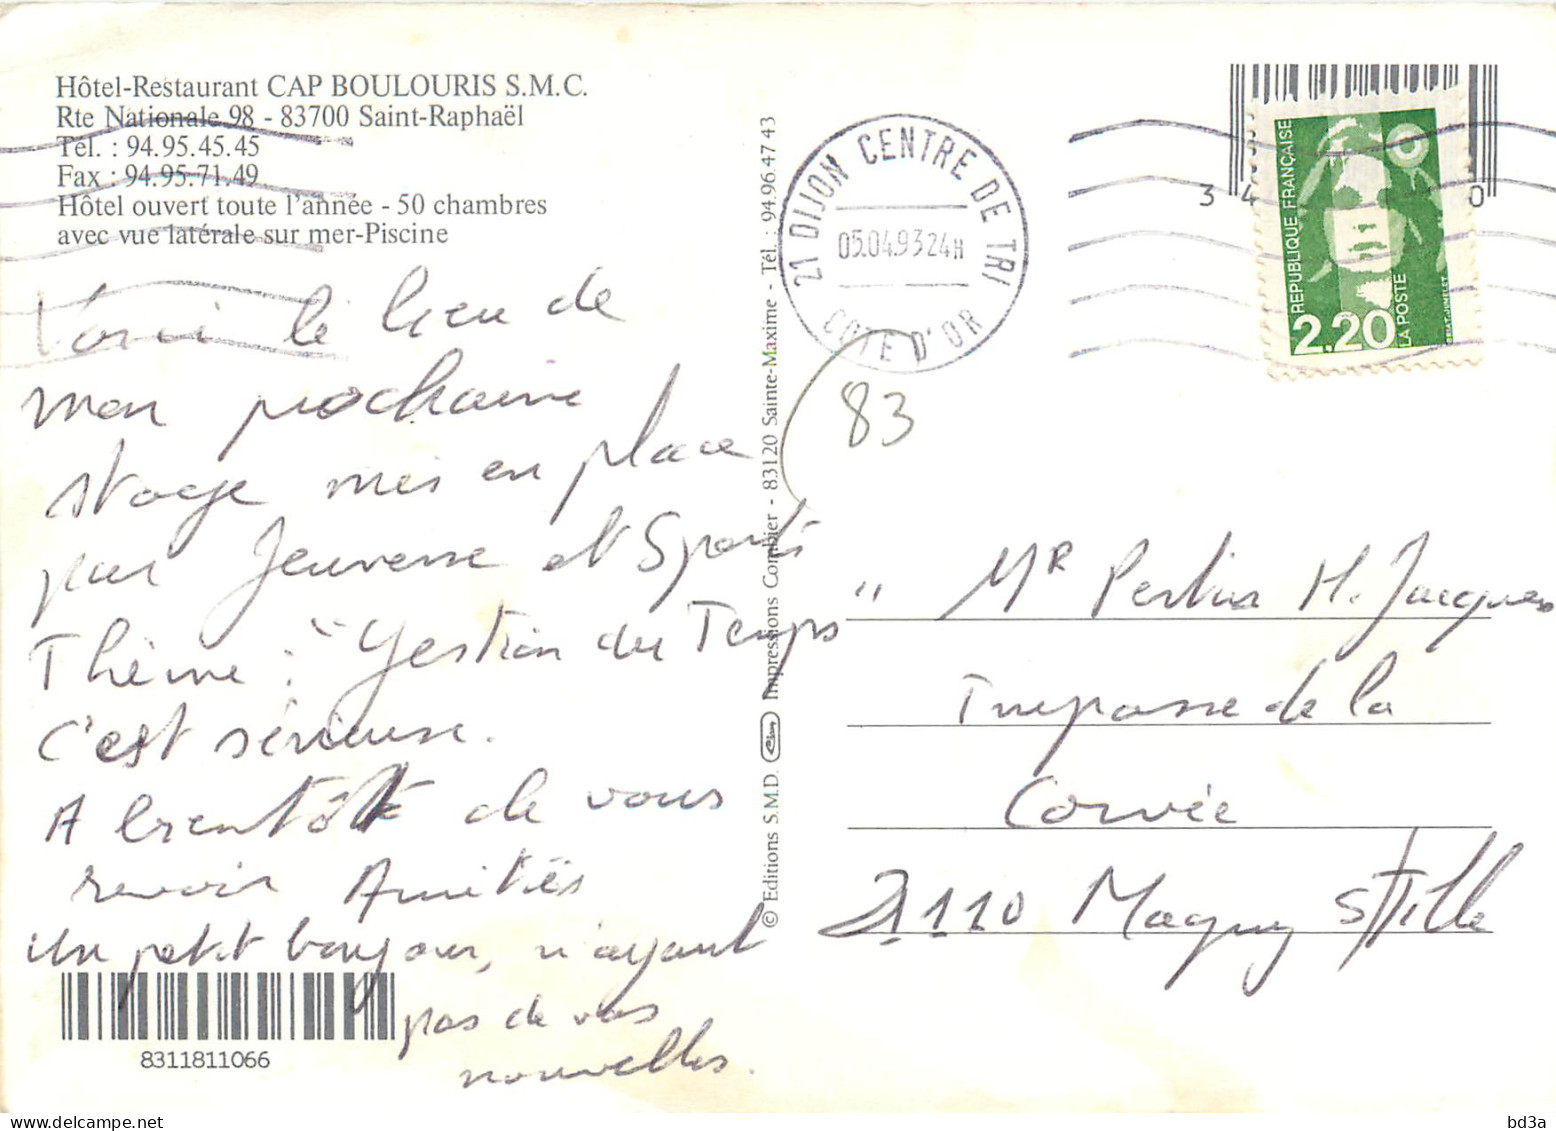 Hôtel-Restaurant CAP BOULOURIS S.M.C.
Rte Nationale 98 - 83700 Saint-Raphaël
Tél. : 94.95.45.45
Fax : 94.95.71.49
Hôtel ouvert toute l'année - 50 chambres
avec vue latérale sur mer-Piscine
Voici le lieu de
mon prochaine
stage mis en place
par Jeunesse et Sports
Thème : "Gestion du Temps"
C'est sérieuse.
A bientôt de vous
revoir Amitiés
Un petit bonjour, n'ayant
pas de vos
nouvelles.
8311811066
© Editions S.M.D. Impressions Combier - 83120 Sainte-Maxime - Tél. : 94.96.47.43
21 DIJON CENTRE DE TRI
05.04.93 24H
COTE D'OR
83
34
0
REPUBLIQUE FRANÇAISE
2.20
LA POSTE
Mr Perlin H. Jacques
Impasse de la
Corvée
21110 Magny
delcampe.net
bd3a